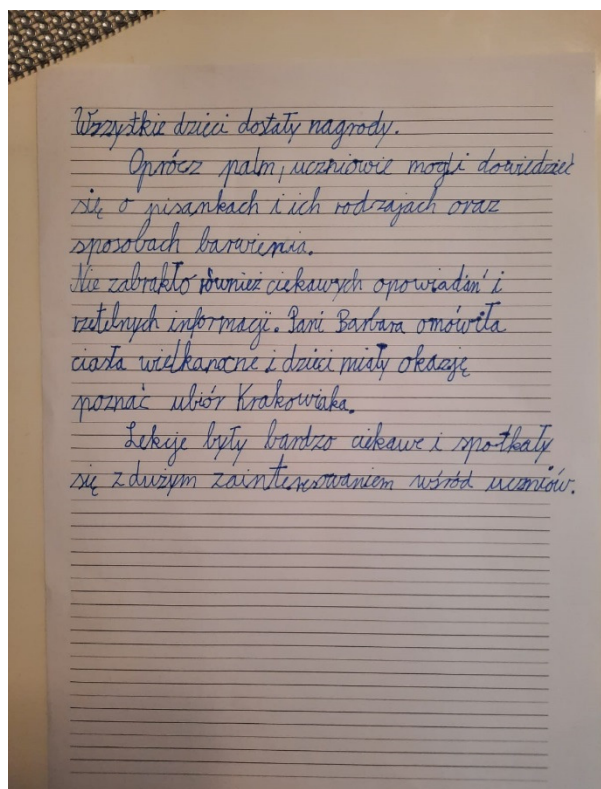 Wszystkie dzieci dostały nagrody.
Oprócz palm, uczniowie mogli dowiedzieć
się o pisankach i ich rodzajach oraz
sposobach barwienia.
Nie zabrakło również ciekawych opowiadań i
rzetelnych informacji. Pani Barbara omówiła
ciasta wielkanocne i dzieci miały okazję
poznać ubiór Krakowiaka.
Lekcje były bardzo ciekawe i spotkały
się z dużym zainteresowaniem wśród uczniów.